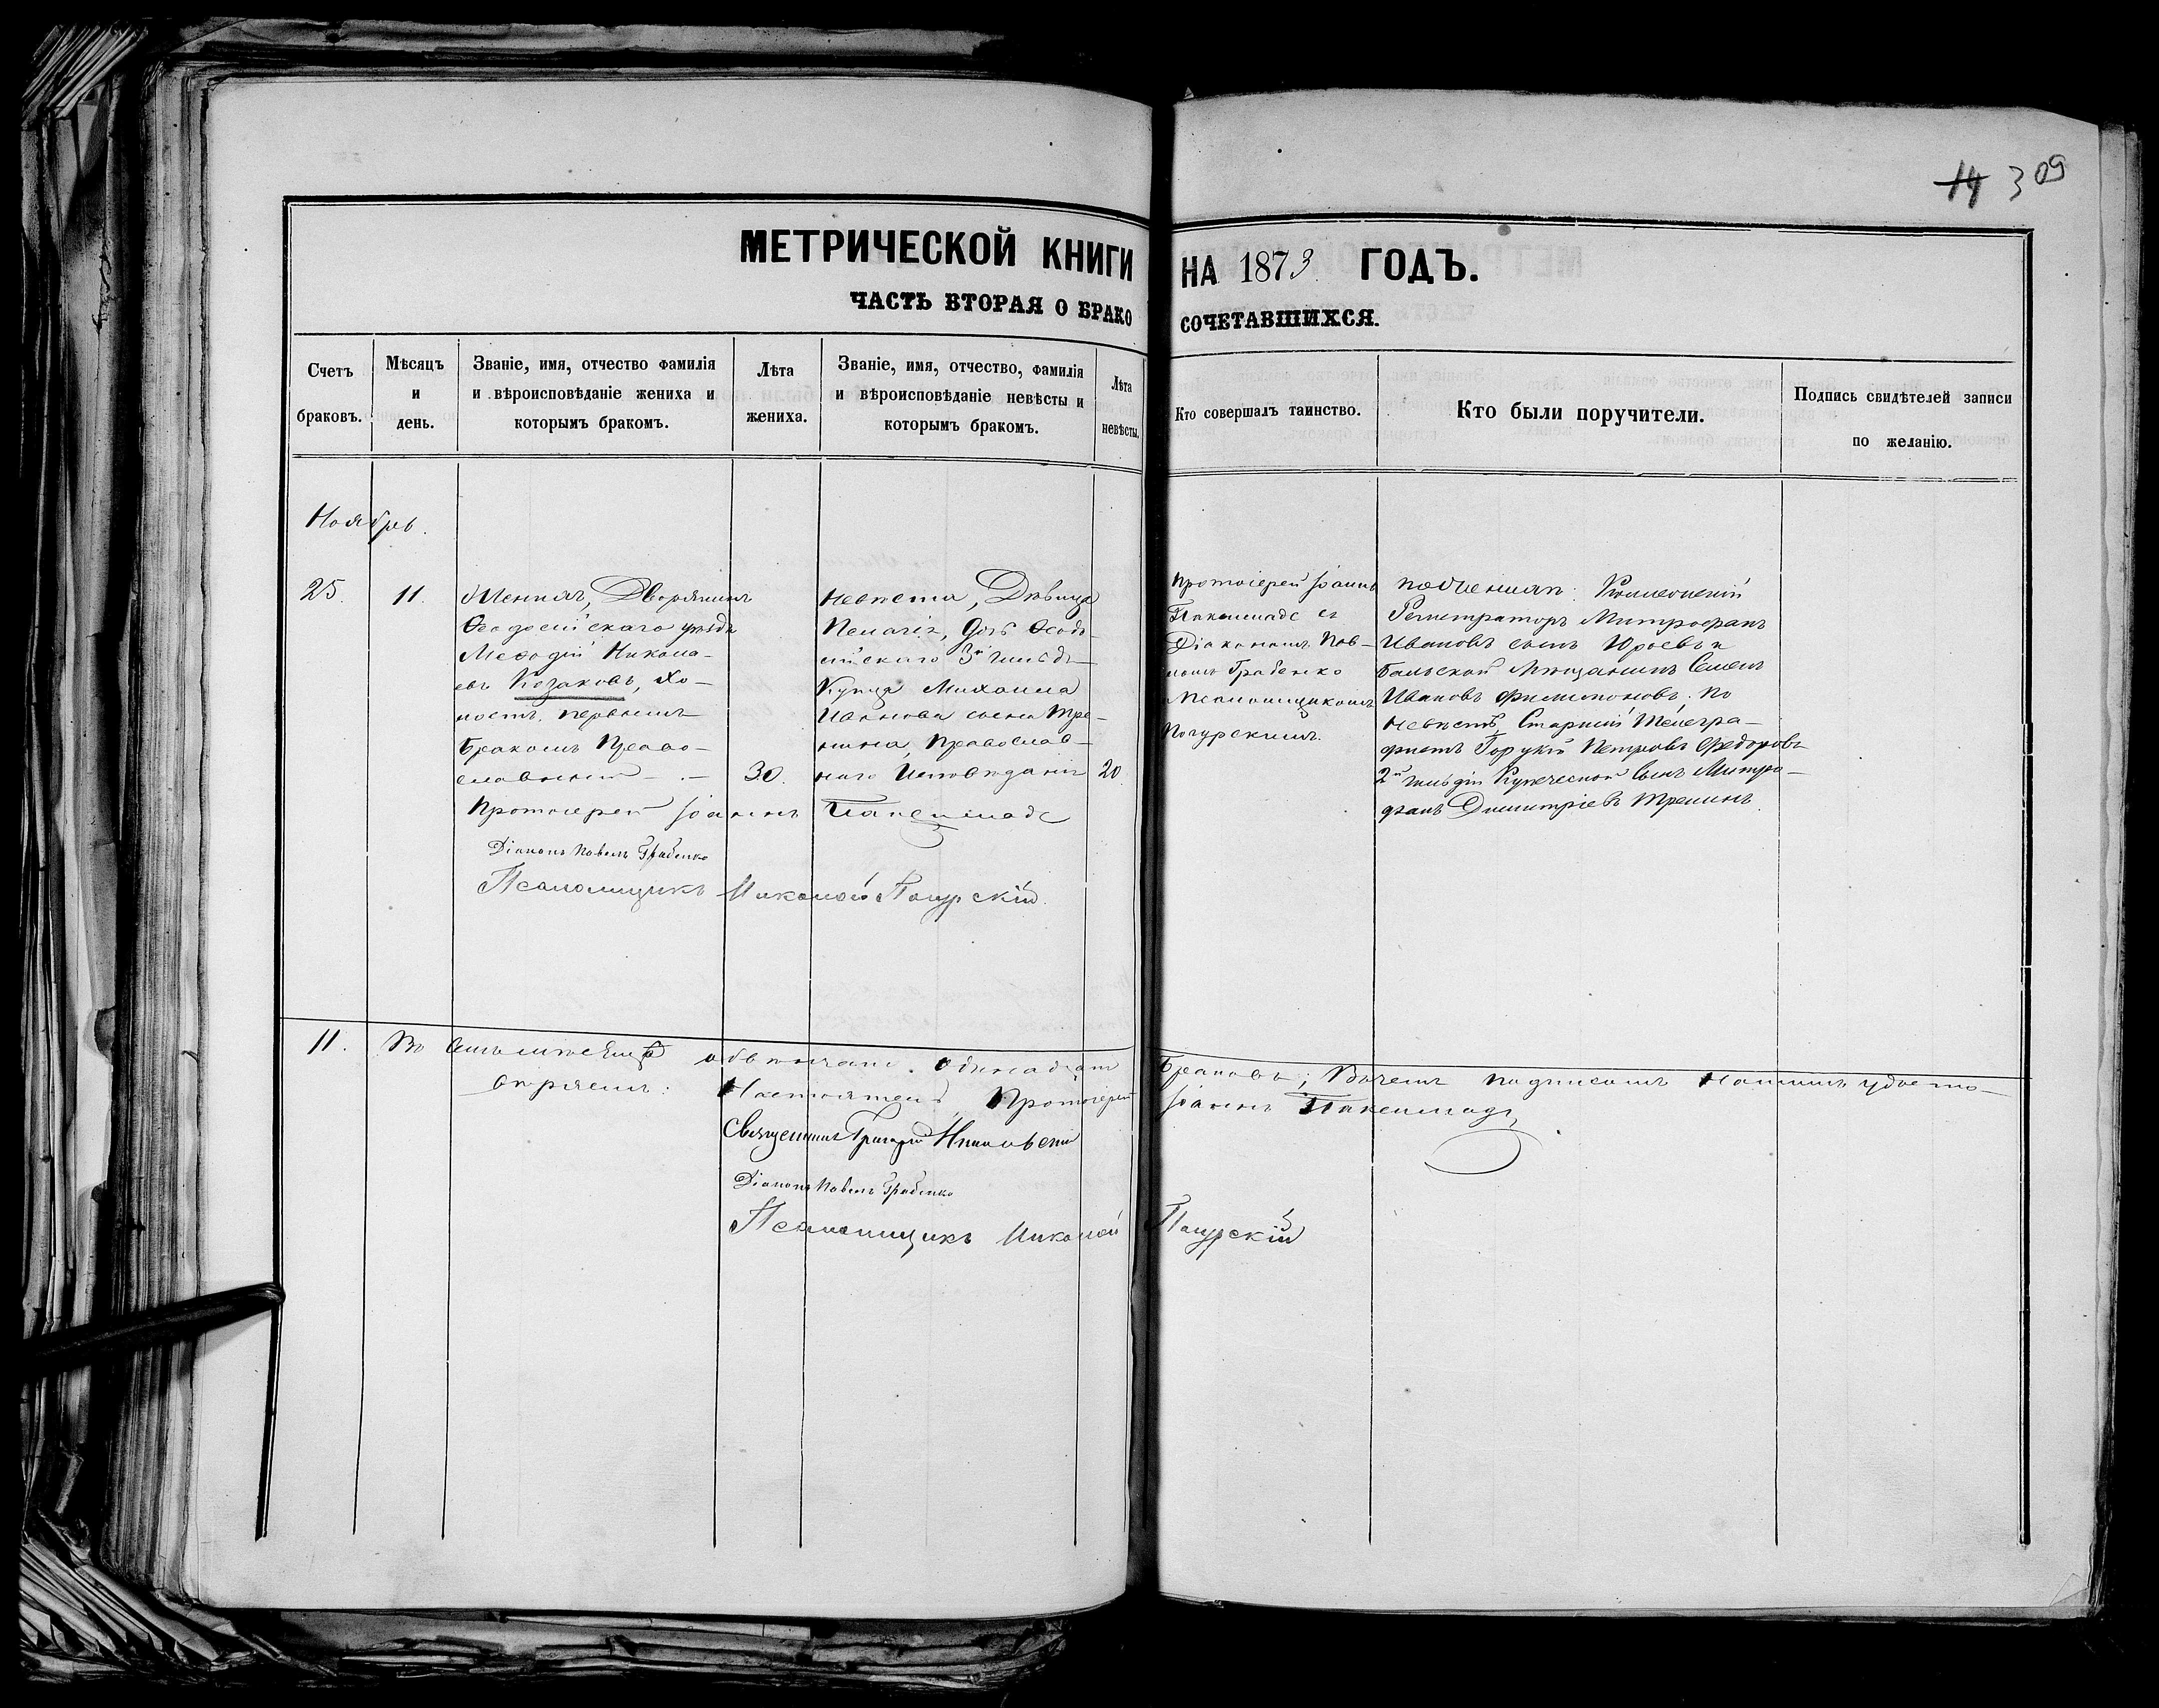 14 309
МЕТРИЧЕСКОЙ КНИГИ НА 1873 ГОДЪ.
ЧАСТЬ ВТОРАЯ О БРАКОСОЧЕТАВШИХСЯ.
Счетъ браковъ.
Мѣсяцъ и день.
Званіе, имя, отчество фамилія
и вѣроисповѣданіе жениха и
которымъ бракомъ.
Лѣта жениха.
Званіе, имя, отчество, фамилія
и вѣроисповѣданіе невѣсты и
которымъ бракомъ.
Лѣта невѣсты.
Кто совершалъ таинство.
Кто были поручители.
Подпись свидѣтелей записи
по желанію.
Ноябрь.
25.
11.
Женихъ, Дворянинъ
Ѳеодосійскаго уѣзда
Меѳодій Никола-
евъ Козаковъ, Хо-
лостъ, первымъ
бракомъ Право-
славный
30.
Невѣста, Дѣвица
Пелагія, дочь Ѳеодо-
сійскаго 3й гильдіи
Купца Михаила
Иванова сына Тре-
нина, Православ-
наго Исповѣданія
20.
Протоіерей Іоаннъ
Пакалиадс съ
Діакономъ Пав-
ломъ Грабенко
Псаломщикомъ
Погурскимъ.
По Женихѣ: Коллежскій
Регистраторъ Митрофанъ
Ивановъ сынъ Юрьевъ и
Мѣщанинъ Семенъ
Ивановъ Филимоновъ. По
Невѣстѣ Старшій Телегра-
фистъ Петровъ Федоровъ
2й гильдіи Купеческой Сынъ Митро-
фанъ Димитріевъ Тренинъ.
Протоіерей Іоаннъ
Діаконъ Павелъ Грабенко
Псаломщикъ Николай Погурскій.
11. Въ семъ мѣсяцѣ обвѣнчано одинадцать браковъ; въ чемъ подписомъ нашимъ удосто-
вѣряемъ: Настоятель, Протоіерей Іоаннъ
Священникъ Григорій
Діаконъ Павелъ Грабенко
Псаломщикъ Николай Погурскій